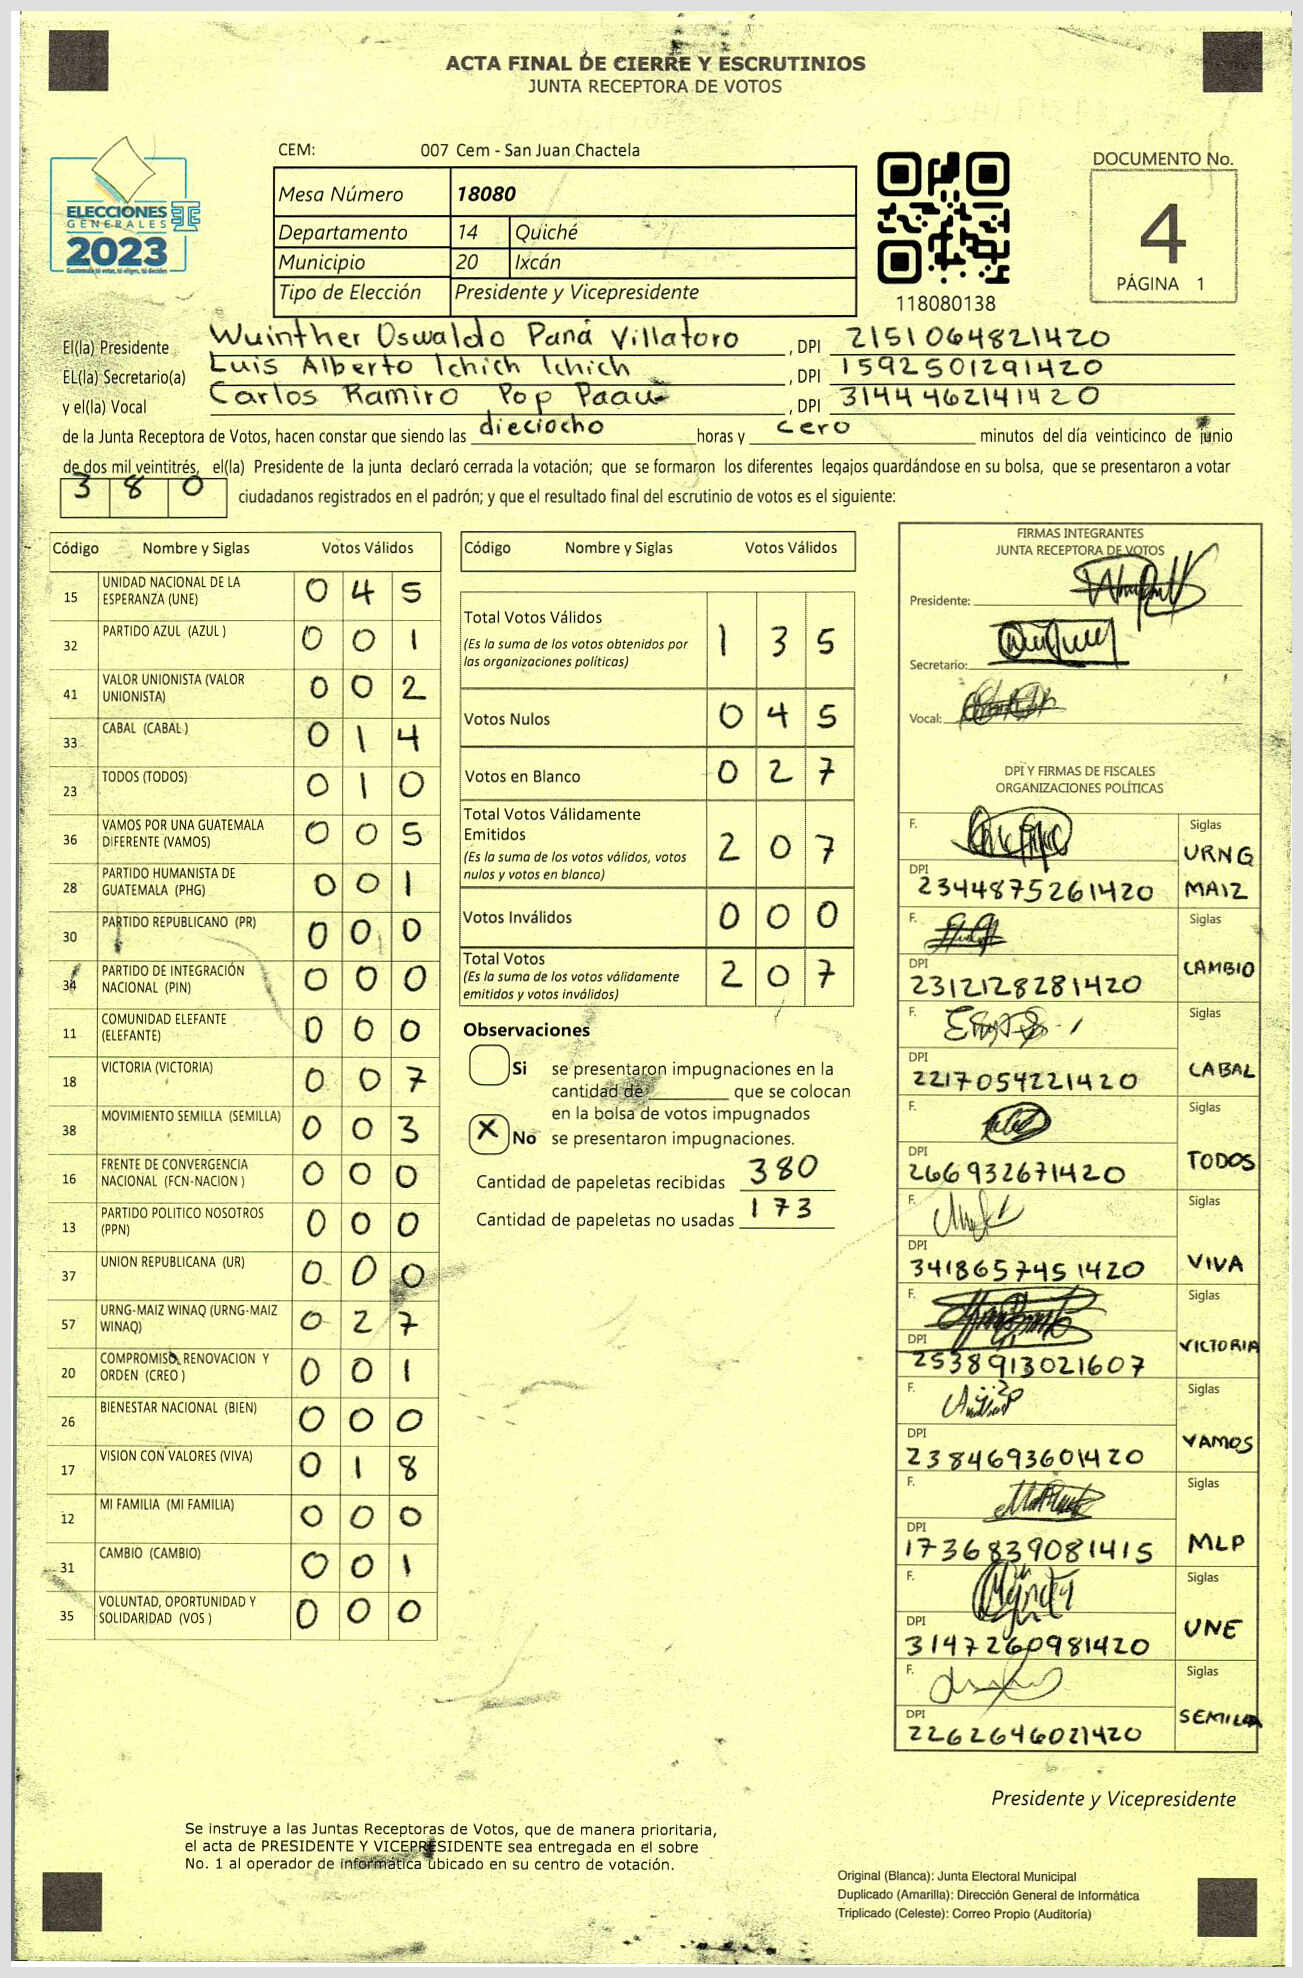 ACTA FINAL DE CIERRE Y ESCRUTINIOS
JUNTA RECEPTORA DE VOTOS
ELECCIONES
GENERALES
2023
Guatemala tú votas, tú eliges, tú decides
CEM: 007 Cem - San Juan Chactela
Mesa Número 18080
Departamento 14 Quiché
Municipio 20 Ixcán
Tipo de Elección Presidente y Vicepresidente
118080138
DOCUMENTO No.
4
PÁGINA 1
El(la) Presidente Wuinther Oswaldo Paná Villatoro , DPI 2151064821420
EL(la) Secretario(a) Luis Alberto Ichich Ichich , DPI 1592501291420
y el(la) Vocal Carlos Ramiro Pop Paau , DPI 3144462141420
de la Junta Receptora de Votos, hacen constar que siendo las dieciocho horas y cero minutos del día veinticinco de junio
de dos mil veintitrés, el(la) Presidente de la junta declaró cerrada la votación; que se formaron los diferentes legajos guardándose en su bolsa, que se presentaron a votar
380 ciudadanos registrados en el padrón; y que el resultado final del escrutinio de votos es el siguiente:
Código Nombre y Siglas Votos Válidos
15 UNIDAD NACIONAL DE LA ESPERANZA (UNE) 0 4 5
32 PARTIDO AZUL (AZUL ) 0 0 1
41 VALOR UNIONISTA (VALOR UNIONISTA) 0 0 2
33 CABAL (CABAL ) 0 1 4
23 TODOS (TODOS) 0 1 0
36 VAMOS POR UNA GUATEMALA DIFERENTE (VAMOS) 0 0 5
28 PARTIDO HUMANISTA DE GUATEMALA (PHG) 0 0 1
30 PARTIDO REPUBLICANO (PR) 0 0 0
34 PARTIDO DE INTEGRACIÓN NACIONAL (PIN) 0 0 0
11 COMUNIDAD ELEFANTE (ELEFANTE) 0 0 0
18 VICTORIA (VICTORIA) 0 0 7
38 MOVIMIENTO SEMILLA (SEMILLA) 0 0 3
16 FRENTE DE CONVERGENCIA NACIONAL (FCN-NACION ) 0 0 0
13 PARTIDO POLITICO NOSOTROS (PPN) 0 0 0
37 UNION REPUBLICANA (UR) 0 0 0
57 URNG-MAIZ WINAQ (URNG-MAIZ WINAQ) 0 2 7
20 COMPROMISO, RENOVACION Y ORDEN (CREO ) 0 0 1
26 BIENESTAR NACIONAL (BIEN) 0 0 0
17 VISION CON VALORES (VIVA) 0 1 8
12 MI FAMILIA (MI FAMILIA) 0 0 0
31 CAMBIO (CAMBIO) 0 0 1
35 VOLUNTAD, OPORTUNIDAD Y SOLIDARIDAD (VOS ) 0 0 0
Código Nombre y Siglas Votos Válidos
Total Votos Válidos 1 3 5
(Es la suma de los votos obtenidos por
las organizaciones políticas)
Votos Nulos 0 4 5
Votos en Blanco 0 2 7
Total Votos Válidamente
Emitidos 2 0 7
(Es la suma de los votos válidos, votos
nulos y votos en blanco)
Votos Inválidos 0 0 0
Total Votos 2 0 7
(Es la suma de los votos válidamente
emitidos y votos inválidos)
Observaciones
Si se presentaron impugnaciones en la
cantidad de ________ que se colocan
en la bolsa de votos impugnados
X No se presentaron impugnaciones.
Cantidad de papeletas recibidas 380
Cantidad de papeletas no usadas 173
FIRMAS INTEGRANTES
JUNTA RECEPTORA DE VOTOS
Presidente:
Secretario:
Vocal:
DPI Y FIRMAS DE FISCALES
ORGANIZACIONES POLÍTICAS
F. Siglas
DPI 2344875261420 URNG MAIZ
F. Siglas
DPI 2312128281420 CAMBIO
F. Siglas
DPI 2217054221420 CABAL
F. Siglas
DPI 266932671420 TODOS
F. Siglas
DPI 3418657451420 VIVA
F. Siglas
DPI 2538913021607 VICTORIA
F. Siglas
DPI 2384693601420 VAMOS
F. Siglas
DPI 1736839081415 MLP
F. Siglas
DPI 3147260981420 UNE
F. Siglas
DPI 2262646021420 SEMILLA
Presidente y Vicepresidente
Se instruye a las Juntas Receptoras de Votos, que de manera prioritaria,
el acta de PRESIDENTE Y VICEPRESIDENTE sea entregada en el sobre
No. 1 al operador de informática ubicado en su centro de votación.
Original (Blanca): Junta Electoral Municipal
Duplicado (Amarilla): Dirección General de Informática
Triplicado (Celeste): Correo Propio (Auditoría)